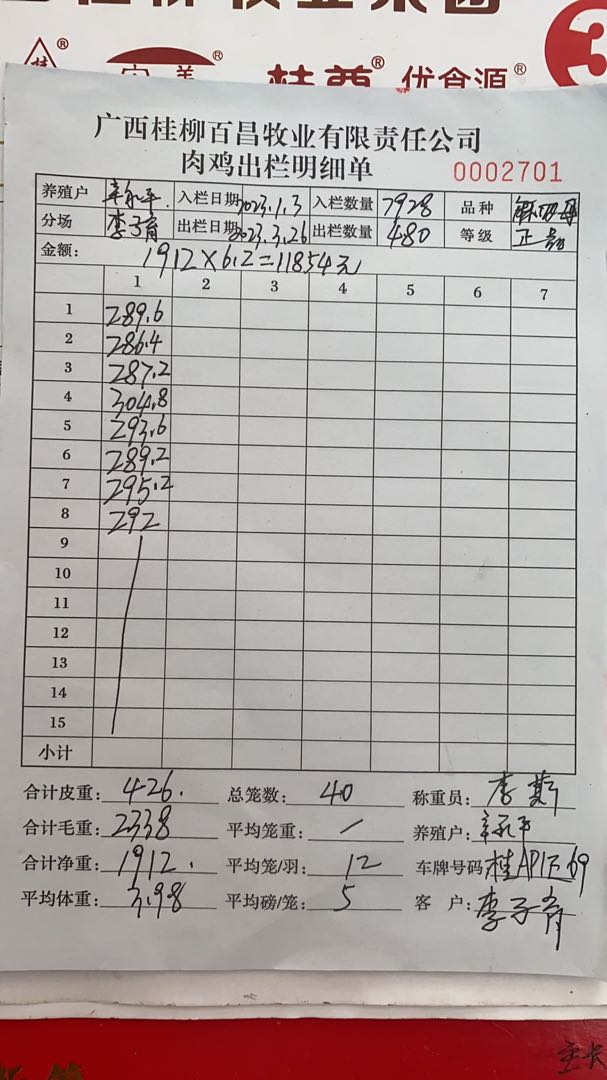 桂尊® 优食源®
广西桂柳百昌牧业有限责任公司
肉鸡出栏明细单 0002701
养殖户 辛永平 入栏日期 2023.1.3 入栏数量 7928 品种
分场 李子育 出栏日期 2023.3.26 出栏数量 480 等级 正
金额: 1912×6.2=11854元
1 2 3 4 5 6 7
1 289.6
2 286.4
3 287.2
4 304.8
5 293.6
6 289.2
7 295.2
8 292
9
10
11
12
13
14
15
小计
合计皮重: 426. 总笼数: 40 称重员: 李斯
合计毛重: 2338 平均笼重: / 养殖户: 辛永平
合计净重: 1912. 平均笼/羽: 12 车牌号码: 桂AP1F69
平均体重: 3.98 平均磅/笼: 5 客户: 李子育